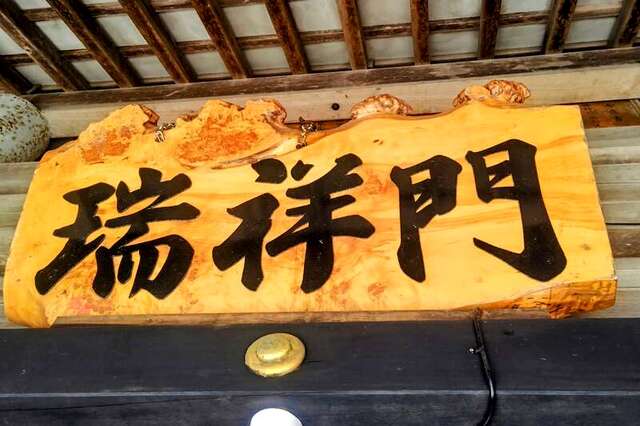 瑞祥門